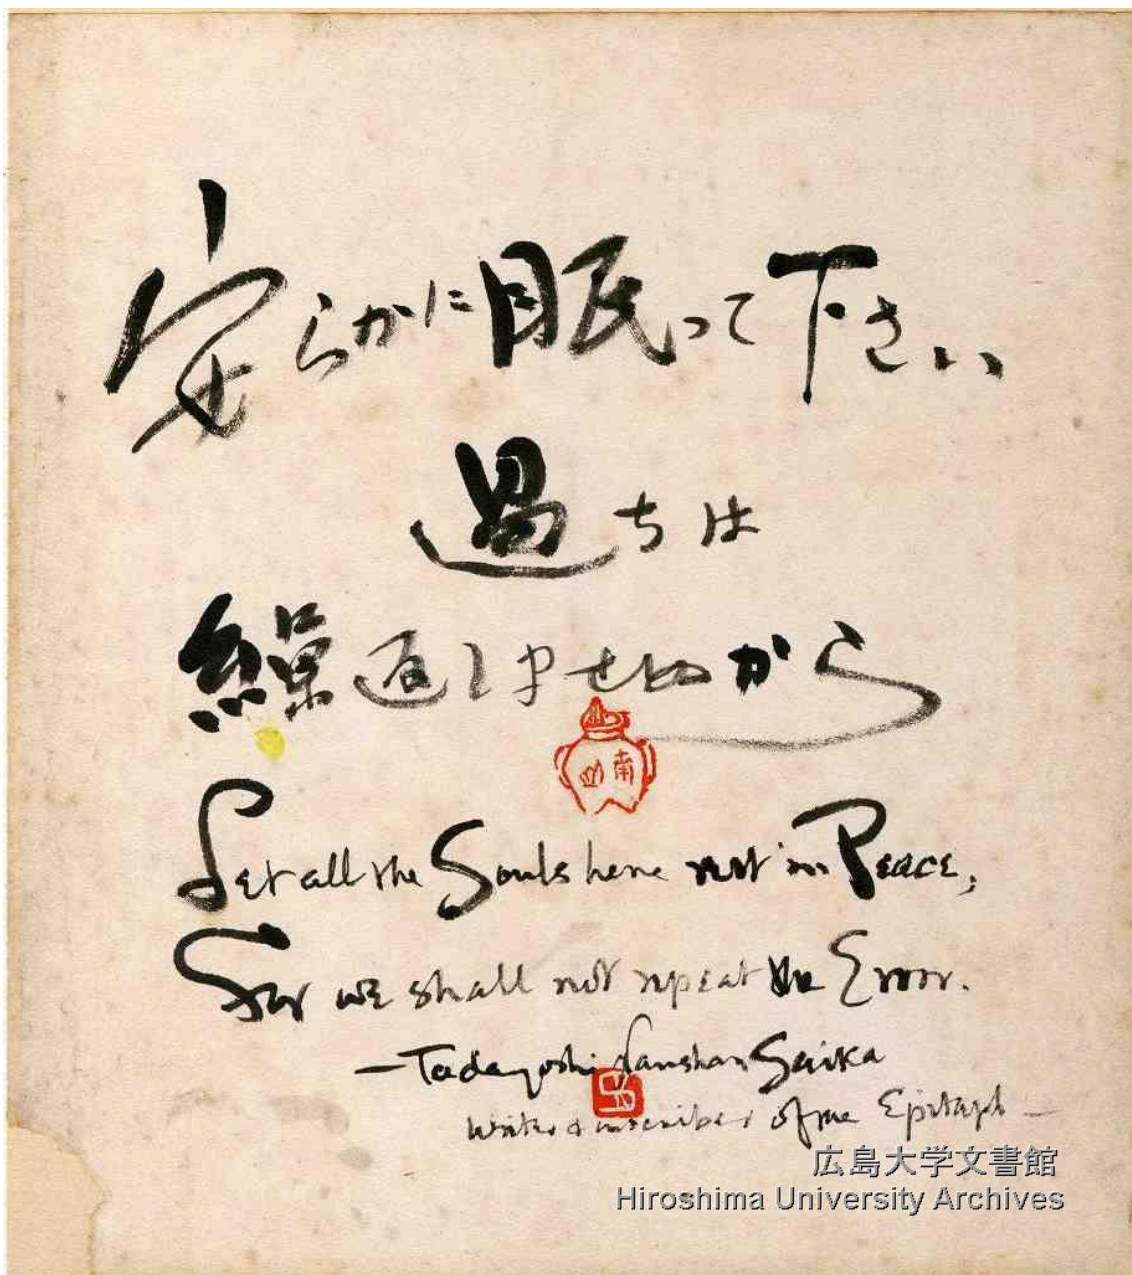 安らかに眠って下さい
過ちは
繰返しませぬから
南山
Let all the Souls here rest in Peace;
For we shall not repeat the Error.
—Tadayoshi Nanshan Saika
writer & inscriber of the Epitaph—
広島大学文書館
Hiroshima University Archives